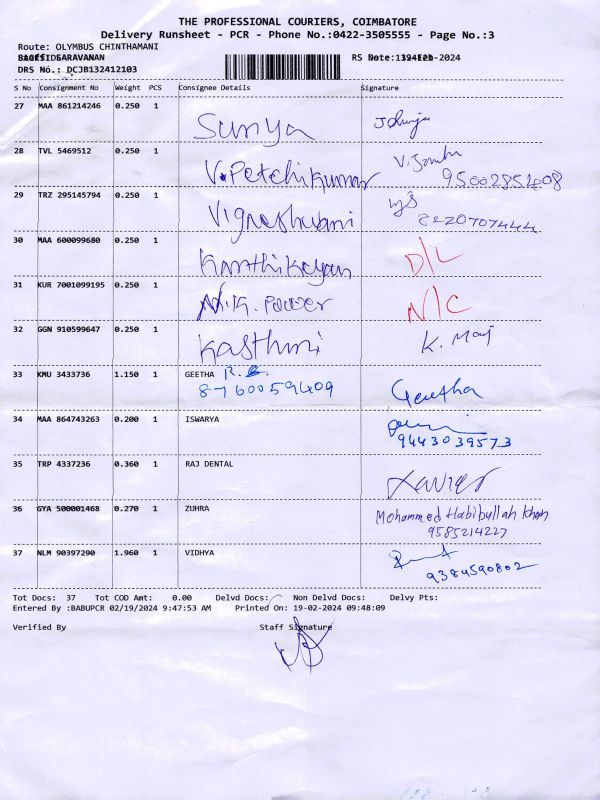 THE PROFESSIONAL COURIERS, COIMBATORE
Delivery Runsheet - PCR - Phone No.:0422-3505555 - Page No.:3
Route: OLYMBUS CHINTHAMANI
SARAVANAN
RS Date: -2024
DRS No.: DCJB132412103
S No Consignment No Weight PCS Consignee Details Signature
27 MAA 861214246 0.250 1 Surya
28 TVL 5469512 0.250 1 V. Petchikumar 9500285408
29 TRZ 295145794 0.250 1 Vigneshwani 8220707444
30 MAA 600099680 0.250 1 Karthikeyan D/L
31 KUR 7001099195 0.250 1 A.K. Power N/C
32 GGN 910599647 0.250 1 Kasthuri K. Mani
33 KMU 3433736 1.150 1 GEETHA Geetha
8760059409
34 MAA 864743263 0.200 1 ISWARYA
9443039573
35 TRP 4337236 0.360 1 RAJ DENTAL Xavier
36 GYA 500001468 0.270 1 ZUHRA Mohammed Habibullah Khan
9585214227
37 NLM 90397290 1.960 1 VIDHYA
9384590802
Tot Docs: 37 Tot COD Amt: 0.00 Delvd Docs: Non Delvd Docs: Delvy Pts:
Entered By :BABUPCR 02/19/2024 9:47:53 AM Printed On: 19-02-2024 09:48:09
Verified By Staff Signature